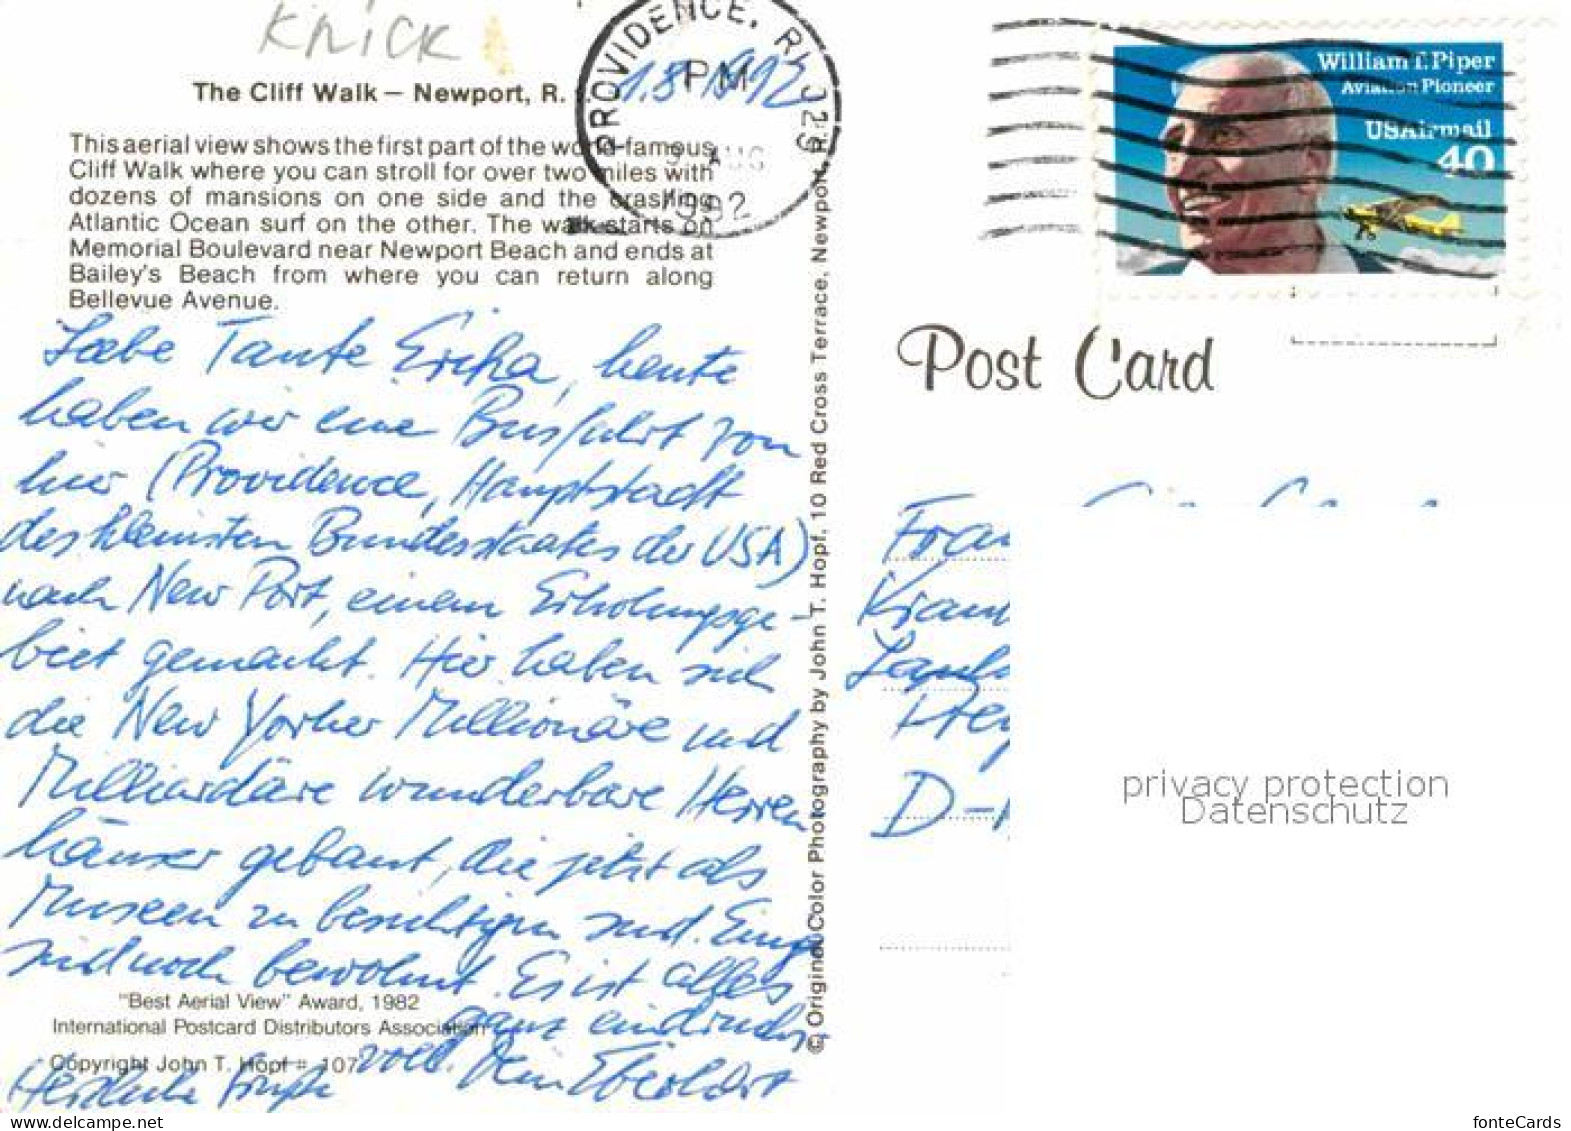 Knick
The Cliff Walk — Newport, R.
This aerial view shows the first part of the world-famous
Cliff Walk where you can stroll for over two miles with
dozens of mansions on one side and the crashing
Atlantic Ocean surf on the other. The walk starts on
Memorial Boulevard near Newport Beach and ends at
Bailey's Beach from where you can return along
Bellevue Avenue.
1.8.1992
PROVIDENCE, RI 029
PM
AUG
1992
William T. Piper
Aviation Pioneer
USAirmail
40
Post Card
Liebe Tante Erika, heute
haben wir eine Busfahrt von
hier (Providence, Hauptstadt
des kleinsten Bundesstaates der USA)
nach New Port, einem Erholungsge-
biet gemacht. Hier haben sich
die New Yorker Millionäre und
Milliardäre wunderbare Herren
häuser gebaut, die jetzt als
Museen zu besichtigen sind. Einige
sind noch bewohnt. Es ist alles
ganz eindrucks
voll. Dein Eberhart
Herzliche Grüße
"Best Aerial View" Award, 1982
International Postcard Distributors Association
Copyright John T. Hopf # 107
© Original Color Photography by John T. Hopf, 10 Red Cross Terrace, Newport, R
Frau
D-
privacy protection
Datenschutz
www.delcampe.net
fonteCards